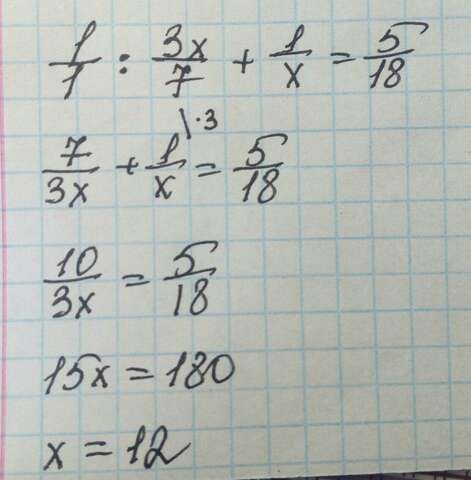 1/1 : 3x/7 + 1/x = 5/18
7/3x + 1/x \·3 = 5/18
10/3x = 5/18
15x = 180
x = 12